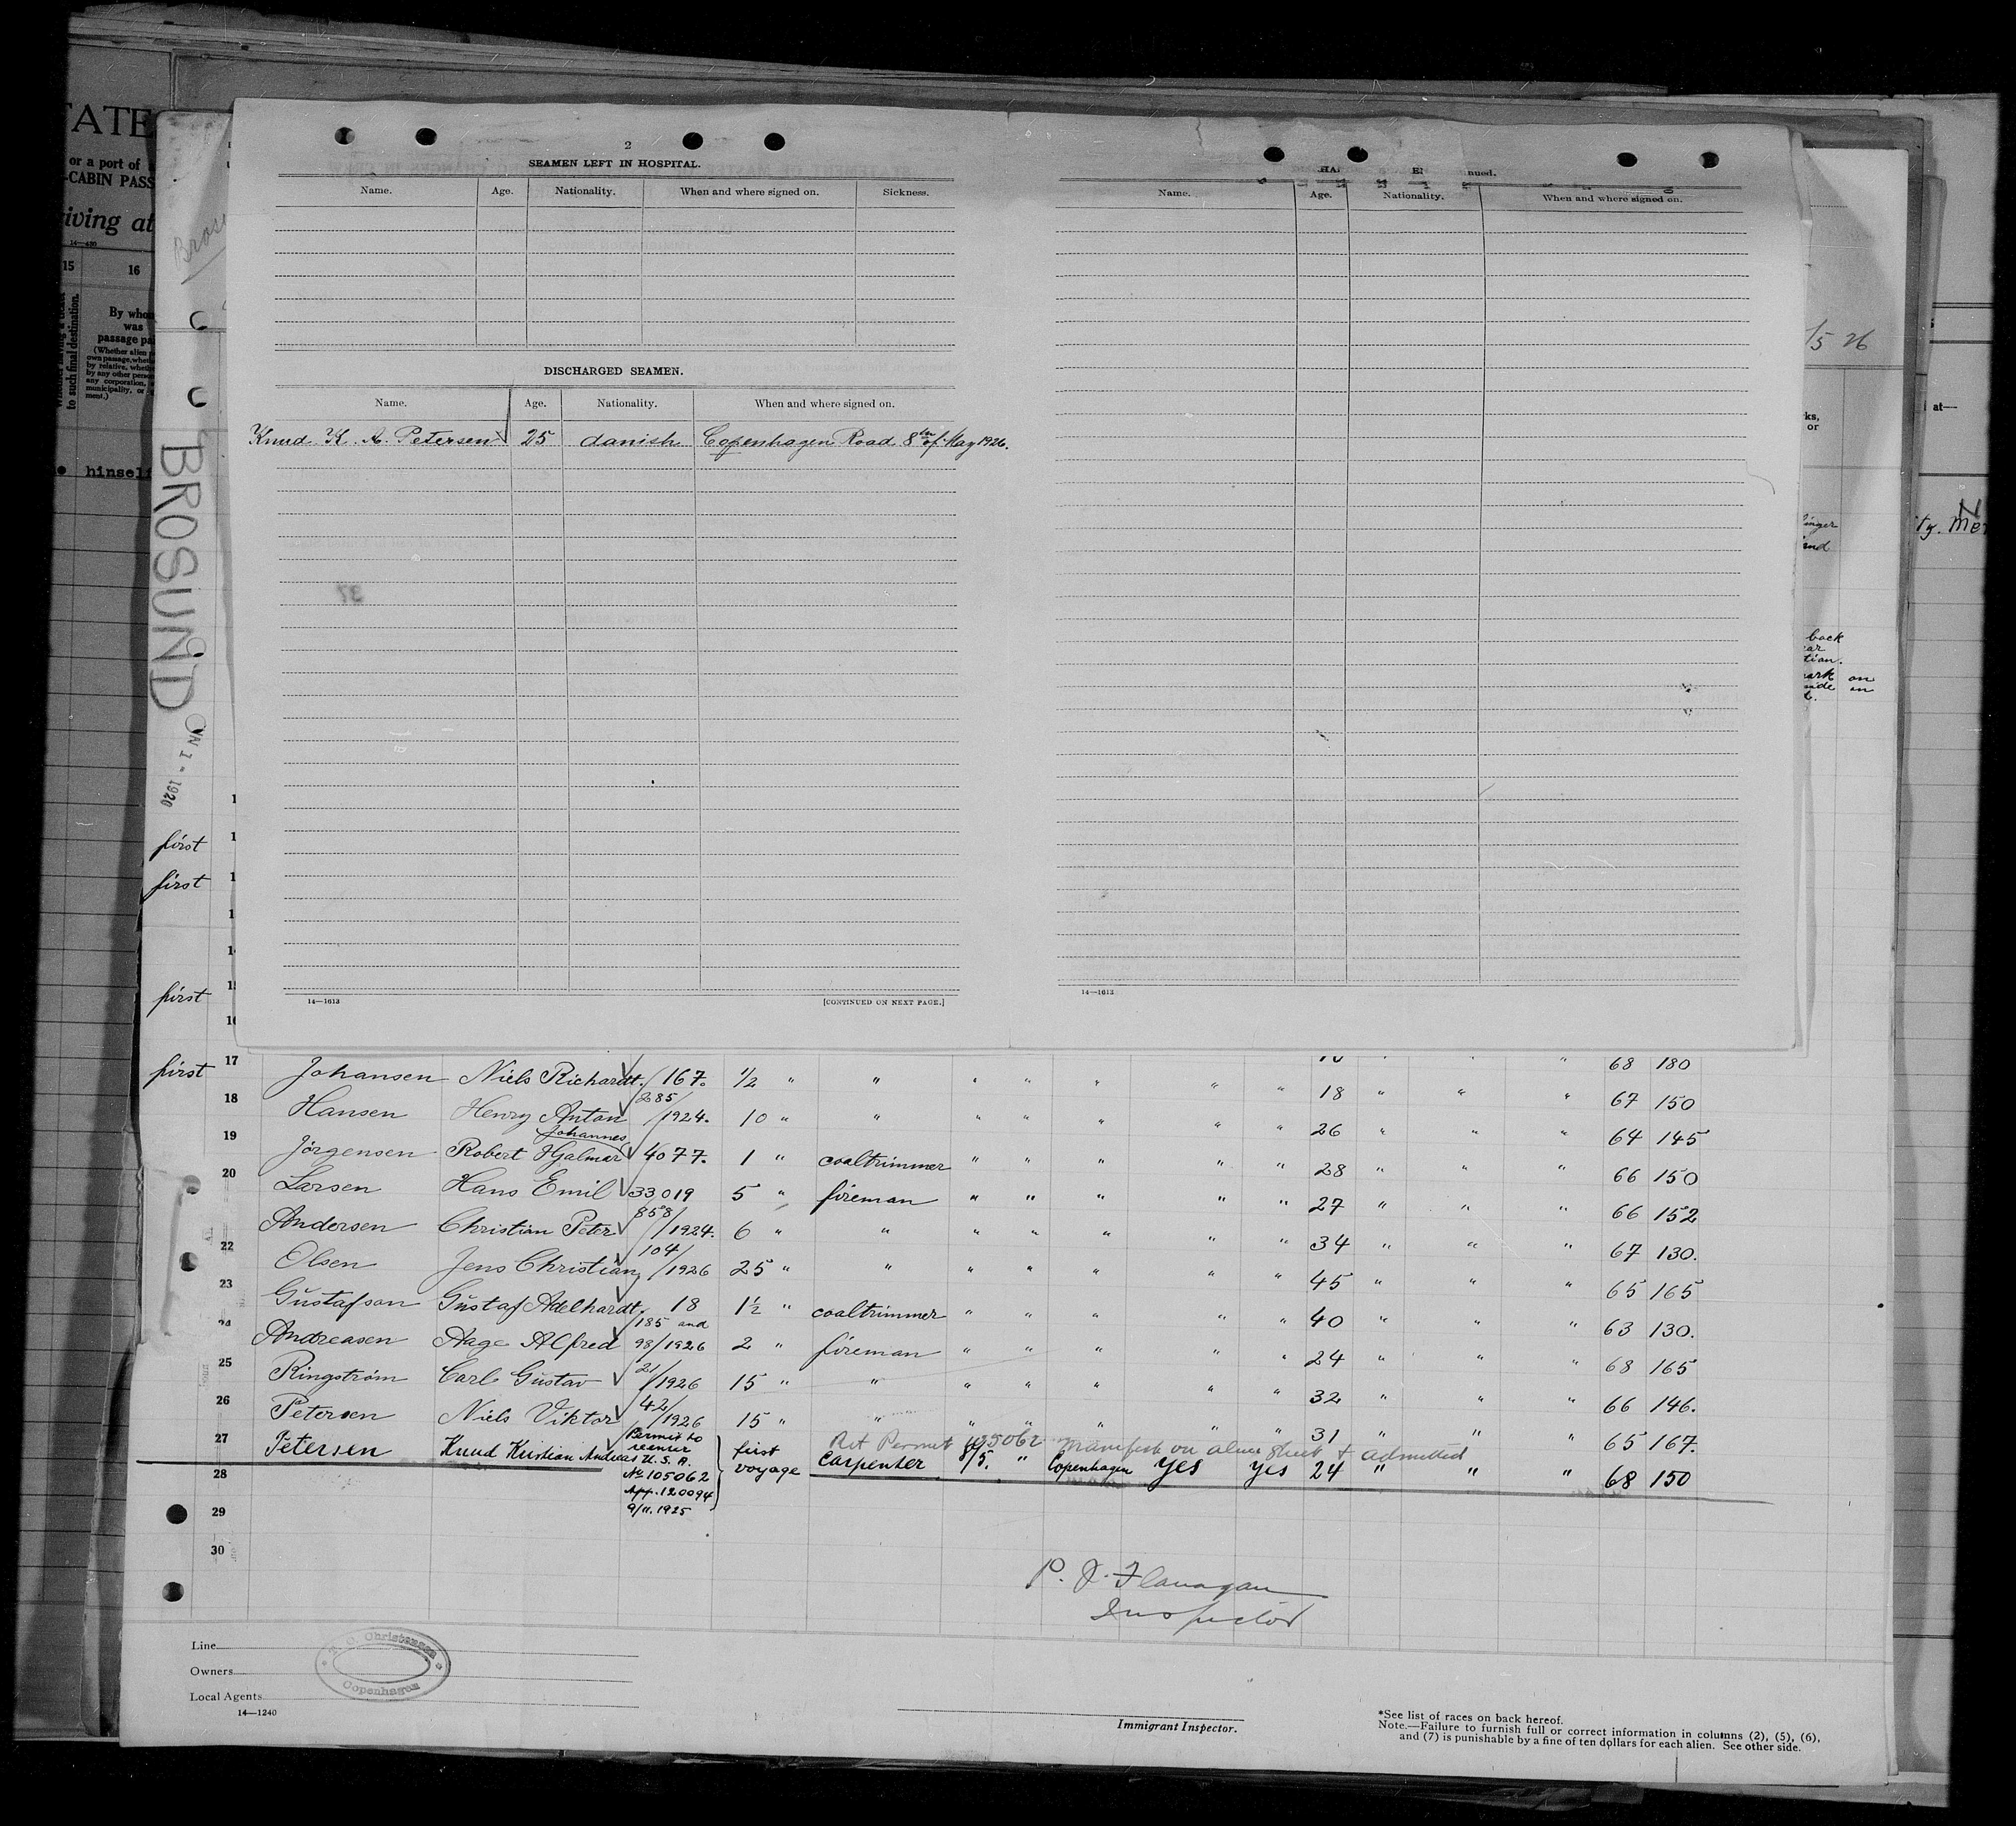 TATE
or a port of
-CABIN PASS
iving at
14—430
15 16
to such final destination.
By whom
was
passage pa
(Whether alien
own passage, wheth
by relative, wheth
by any other person
any corporation,
municipality, or
ment.)
himself
BROSUND
1 - 1926
first
first
first
first
2
SEAMEN LEFT IN HOSPITAL.
Name. Age. Nationality. When and where signed on. Sickness.
DISCHARGED SEAMEN.
Name. Age. Nationality. When and where signed on.
Knud K. A. Petersen 25 danish Copenhagen Road 8th of May 1926.
37
14—1613 [CONTINUED ON NEXT PAGE.]
nued.
Name. Age. Nationality. When and where signed on.
14—1613
/5 26
ks,
or
at—
ty. Mer
back
tion.
ark on
17 Johansen Niels Richardt. /167. 1/2 " " " " " " " " " " 68 180
18 Hansen Henry Anton 285/1924. 10 " " " " " " " 18 " " " 67 150
19 Jörgensen Robert Hjalmar Johannes 4077. 1 " coaltrimmer " " " " " 26 " " " 64 145
20 Larsen Hans Emil 33019 5 " fireman " " " " " 28 " " " 66 150
Andersen Christian Peter 858/1924. 6 " " " " " " " 27 " " " 66 152
22 Olsen Jens Christian 104/1926 25 " " " " " " " 34 " " " 67 130.
23 Gustafson Gustaf Adelhardt. 18 1½ " coaltrimmer " " " " " 45 " " " 65 165
24 Andreasen Aage Alfred 185 and 98/1926 2 " fireman " " " " " 40 " " " 63 130.
25 Ringström Carl Gustav 21/1926 15 " " " " " " " 24 " " " 68 165
26 Petersen Niels Viktor 42/1926 15 " " " " " " " 32 " " " 66 146.
31 " " " 65 167.
Ret Permit 105062 manifest on alien sheet & admitted
27 Petersen Knud Kristian Andreas Permit to reenter U.S.A. No 105062 App. 120094 9/11.1925 first voyage Carpenter 8/5. " Copenhagen yes yes 24 " " " 68 150
28
29
30
P. J. Flanagan
Inspector
Line
Owners
Local Agents
14—1240
Christensen
Copenhagen
Immigrant Inspector.
*See list of races on back hereof.
Note.—Failure to furnish full or correct information in columns (2), (5), (6),
and (7) is punishable by a fine of ten dollars for each alien. See other side.